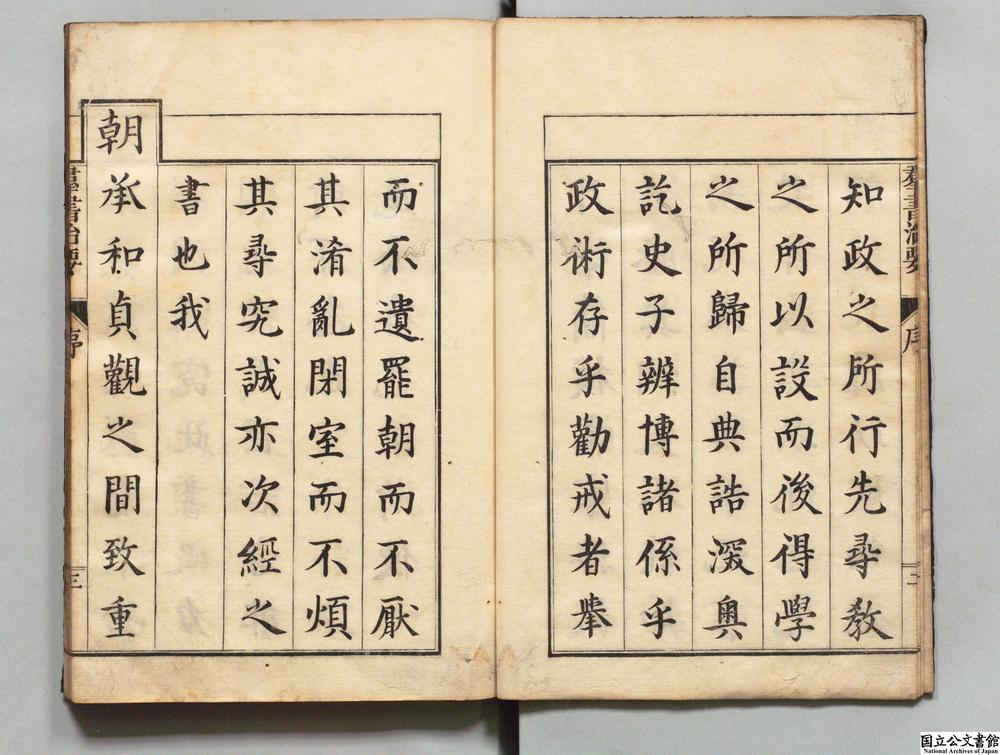 羣書治要
序
二
知政之所行先尋教
之所以設而後得學
之所歸自典誥深奥
訖史子辨博諸係乎
政術存乎勸戒者舉
而不遺罷朝而不厭
其淆亂閉室而不煩
其尋究誠亦次經之
書也我
朝承和貞觀之間致重
羣書治要
序
三
国立公文書館
National Archives of Japan